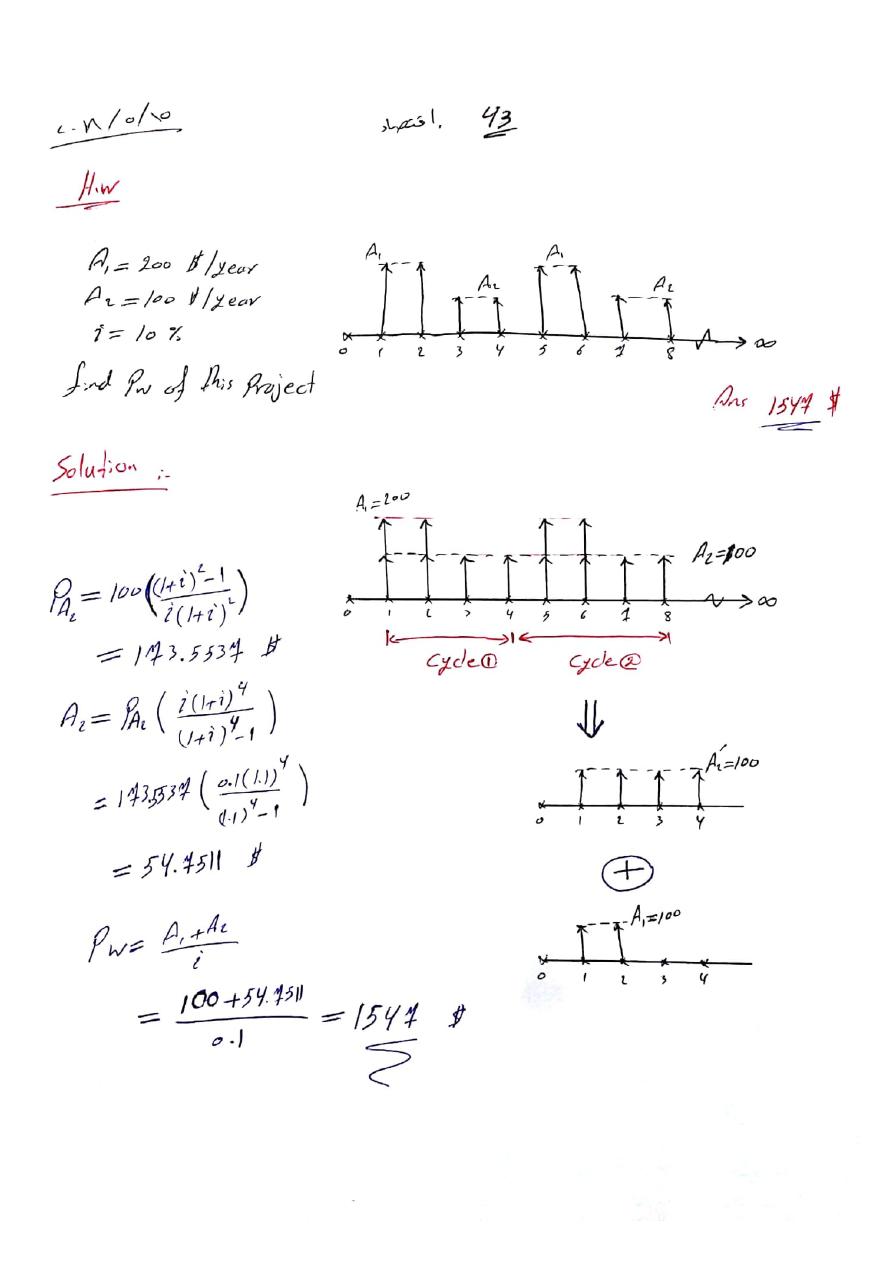 اقتصاد. 43
H.W
A₁ = 200 $/year
A₂ = 100 $/year
i = 10 %
find Pw of this Project
A₁ A₂ A₁ A₂
0 1 2 3 4 5 6 7 8 ∞
Ans 1547 $
Solution :-
A₁ = 200
A₂ = 100
0 1 2 3 4 5 6 7 8 ∞
Cycle ① Cycle ②
P_A₂ = 100 (((1+i)²-1)/(i(1+i)²))
= 173.5537 $
A₂ = P_A₂ (i(1+i)⁴/((1+i)⁴-1))
= 173.5537 (0.1(1.1)⁴/((1.1)⁴-1))
= 54.7511 $
Pw = (A₁+A₂)/i
= (100+54.7511)/0.1 = 1547 $
⇓
A₂′=100
0 1 2 3 4
+
A₁=100
0 1 2 3 4